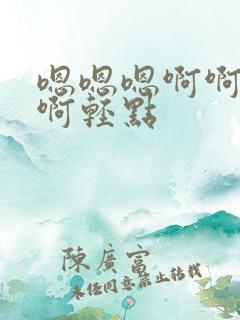 嗯嗯嗯啊啊
啊輕點
陳廣富
未经同意禁止转载